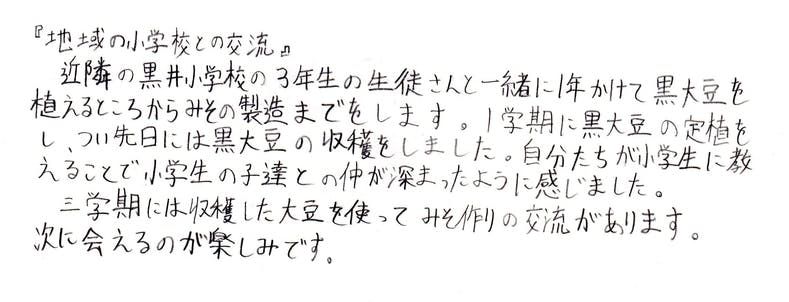 『地域の小学校との交流』
近隣の黒井小学校の3年生の生徒さんと一緒に1年かけて黒大豆を
植えるところからみその製造までをします。1学期に黒大豆の定植を
し、つい先日には黒大豆の収穫をしました。自分たちが小学生に教
えることで小学生の子達との仲が深まったように感じました。
三学期には収穫した大豆を使ってみそ作りの交流があります。
次に会えるのが楽しみです。